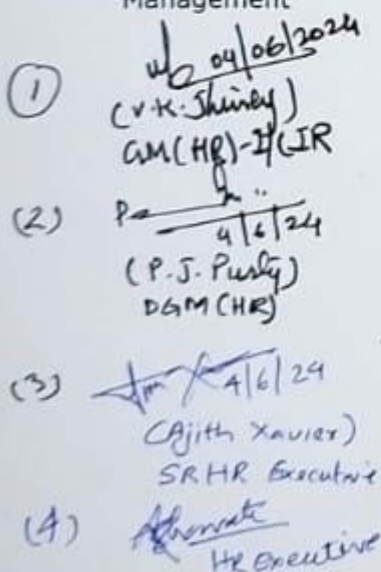 Management
① 04/06/2024
(V.K.
GM(HR)-I/C IR
(2)
4/6/24
(P.J. Purty)
DGM (HR)
(3) 4/6/24
(Ajith Xavier)
SR HR Executive
(4)
HR Executive